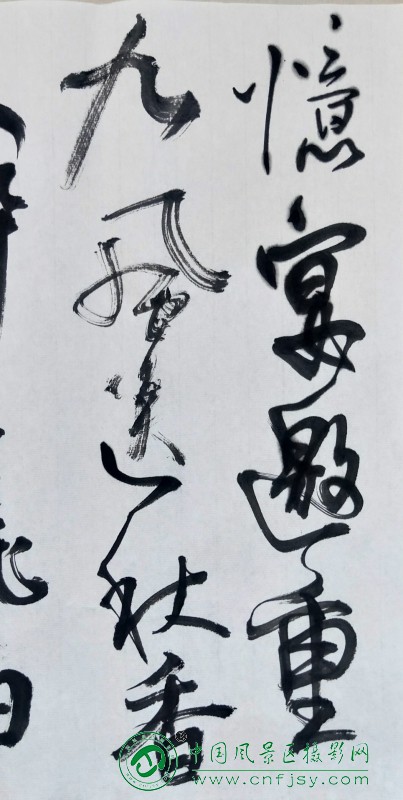 憶宴邀重
九風送秋香
中国风景区摄影网
www.cnfjsy.com